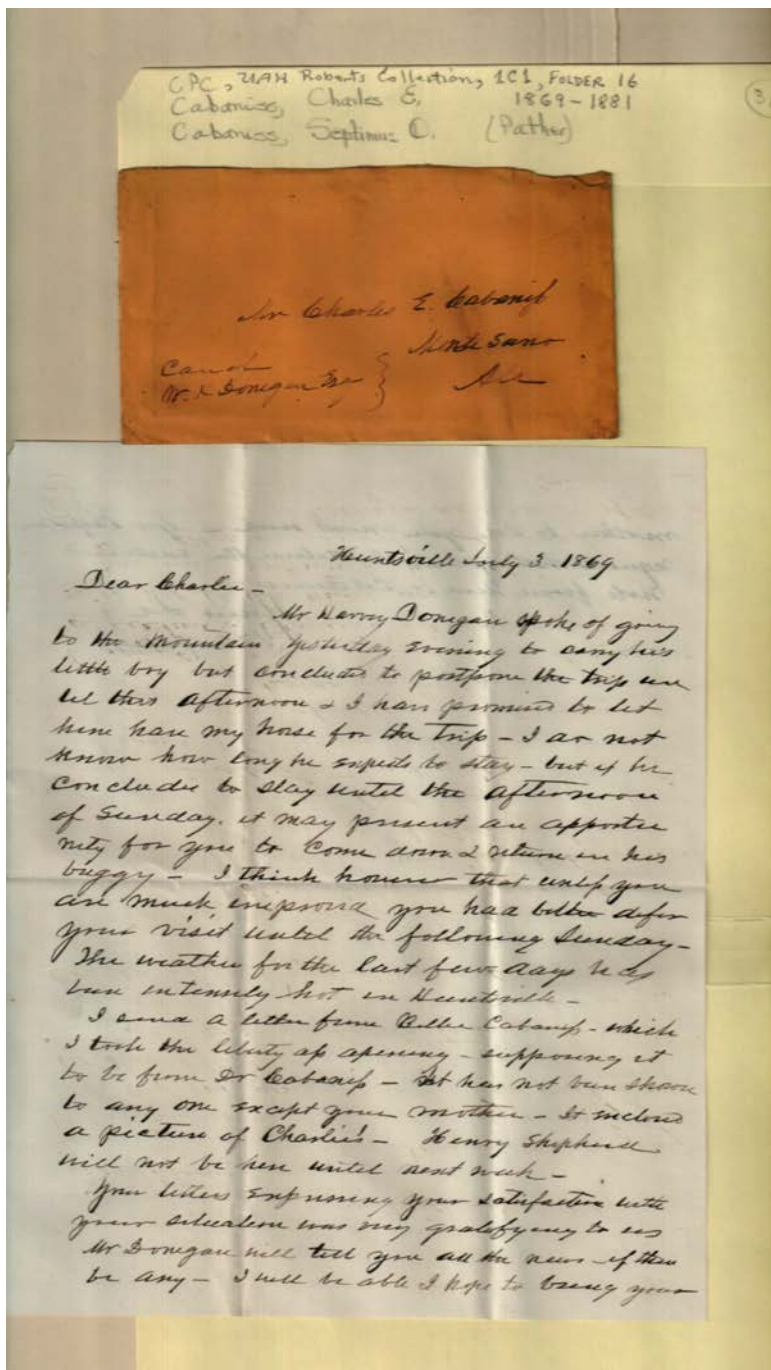 CPC, UAH Roberts Collection, 1C1, FOLDER 16
Cabaniss, Charles E. 1869-1881
Cabaniss, Septimus D. (Father)
3
Mr Charles E. Cabaniss
Monte Sano
Ala
Care of
W. Donegan Esq
Huntsville July 3. 1869
Dear Charlie -
Mr Harvey Donegan spoke of going
to the mountain yesterday evening to carry his
little boy but concludes to postpone the trip un
til this afternoon & I have promised to let
him have my horse for the trip - I do not
know how long he expects to stay - but if he
concludes to stay until the afternoon
of Sunday. it may present an opportu
nity for you to come down & return in his
buggy - I think however that unless you
are much improved you had better defer
your visit until the following Sunday -
The weather for the last few days has
been intensely hot in Huntsville -
I send a letter from Cabaniss - which
I took the liberty of opening - supposing it
to be from Dr Cabaniss - It has not been shown
to any one except your mother - It inclosed
a picture of Charlie's - Henry Shepherd
will not be here until next week -
Your letters expressing your satisfaction with
your was very gratifying to us
Mr Donegan will tell you all the news - if there
be any - I will be able I hope to bring your